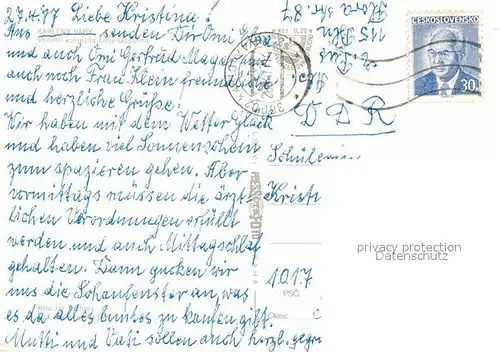 27.4.77 Liebe Kristina!
Aus KARLOVY VARY senden Dir Omi Gla
und auch Omi Gertrud Magdal
und noch Frau Klein freundliche
und herzliche Grüße.
Wir haben mit dem Wetter Glück
und haben viel Sonnenschein
zum spazieren gehen. Aber
vormittags müssen die ärzt-
lichen Verordnungen erfüllt
werden und auch Mittagschlaf
gehalten. Dann gucken wir
uns die Schaufenster an, was
es da alles buntes zu kaufen gift.
Mutti und Vati sollen auch herzl. gegrü
ČESKOSLOVENSKO
30
DDR
Schülerin
Kristi
1017
PSČ
Okres
PRESSFOTO
PRAHA
Kčs 0,70
privacy protection
Datenschutz